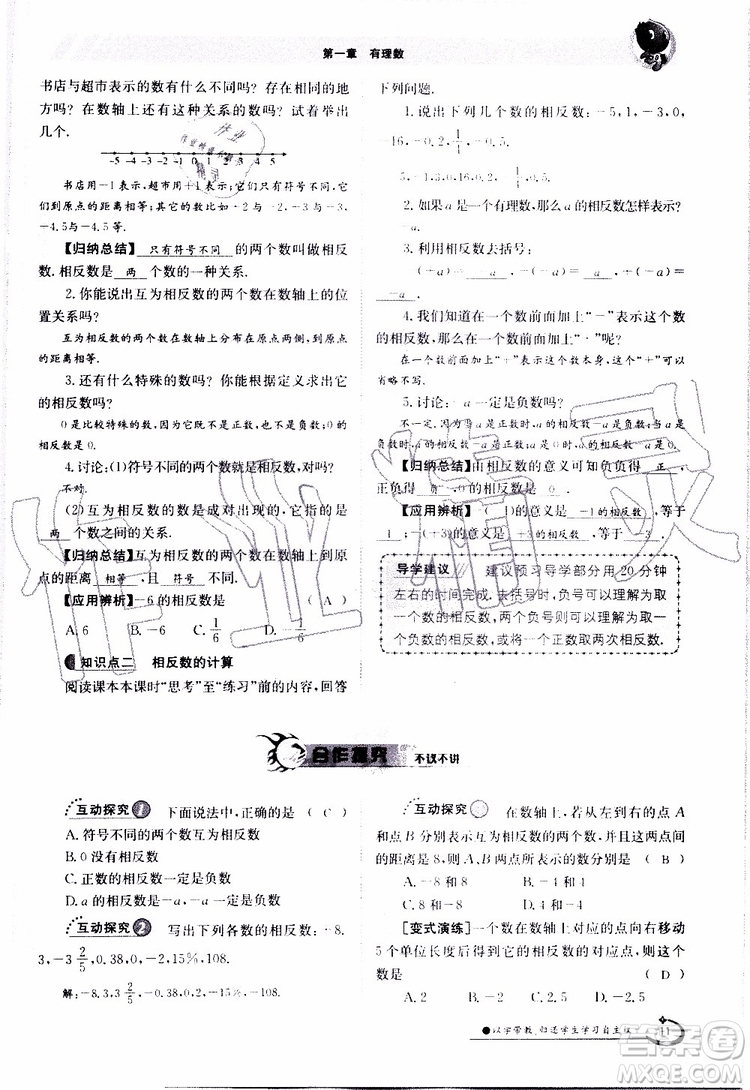 第一章 有理数
书店与超市表示的数有什么不同吗?存在相同的地
方吗?在数轴上还有这种关系的数吗?试着举出
几个.
-5 -4 -3 -2 -1 0 1 2 3 4 5
书店用-1表示,超市用+1表示;它们只有符号不同,
到原点的距离相等;其它的数比如-2与2,-3与3,
-4.5与4.5等.
【归纳总结】 只有符号不同 的两个数叫做相反
数.相反数是 两 个数的一种关系.
2.你能说出互为相反数的两个数在数轴上的位
置关系吗?
互为相反数的两个数在数轴上分布在原点两侧,到原点
的距离相等.
3.还有什么特殊的数吗?你能根据定义求出它
的相反数吗?
0是比较特殊的数,因为它既不是正数,也不是负数;0的
相反数是0.
4.讨论:(1)符号不同的两个数就是相反数,对吗?
不对.
(2)互为相反数的数是成对出现的,它指的是
两 个数之间的关系.
【归纳总结】互为相反数的两个数在数轴上到原
点的距离 相等 ,且符号 相反 .
【应用辨析】-6的相反数是 ( A )
A.6 B.-6 C.1/6 D.-1/6
知识点二 相反数的计算
阅读课本本课时“思考”至“练习”前的内容,回答
下列问题.
1.说出下列几个数的相反数:-5,1,-3,0,
-16,-0.2,1/4.
2.如果a是一个有理数,那么a的相反数怎样表示?
-a.
3.利用相反数去括号:
-(+a)= -a
4.我们知道在一个数前面加上“-”表示这个数
的相反数,那么在一个数前面加上“+”呢?
在一个数前面加上“+”表示这个数本身,这个“+”可以
省略不写.
5.讨论:-a一定是负数吗?
不一定.
【归纳总结】由相反数的意义可知负负得 正 ,
正负得 负 ,0的相反数是 0 .
【应用辨析】-(-1)的意义是 -1的相反数 ,等于
1 ;-(+3)等于 -3 .
导学建议
建议预习导学部分用20分钟
左右的时间完成.去括号时,负号可以理解为取
一个数的相反数,两个负号则可以理解为取一
个负数的相反数,或将一个正数取两次相反数.
合作探究 不议不讲
互动探究1 下面说法中,正确的是 ( C )
A.符号不同的两个数互为相反数
B.0没有相反数
C.正数的相反数一定是负数
D.a的相反数是-a,-a一定是负数
互动探究2 写出下列各数的相反数:-8.
3,-3 2/5,0.38,0,-2,15%,108.
解:-8,3,3 2/5,-0.38,0,2,-15%,-108.
互动探究 在数轴上,若从左到右的点A
和点B分别表示互为相反数的两个数,且这两点间
的距离是8,则A、B两点所表示的数分别是 ( B )
A.-8和8 B.-4和4
C.8和8 D.4和-4
[变式演练]一个数在数轴上对应的点向右移动
5个单位长度后得到它的相反数的对应点,则这个
数是 ( D )
A.2 B.-2 C.2.5 D.-2.5
以学带教,归还学生学习自主权
11
作业精灵